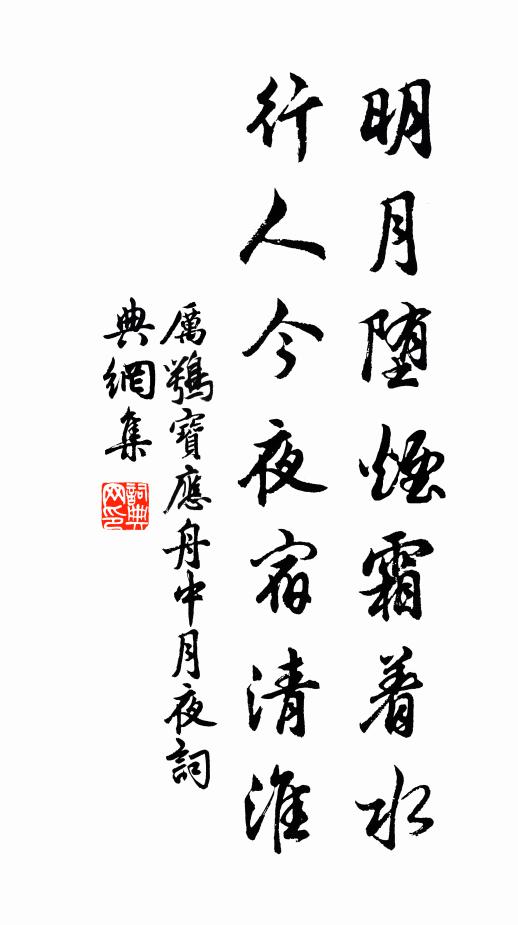 明月堕煙霜着水
行人今夜宿清淮
厲鶚寶應舟中月夜詞
典網集
詞典网印